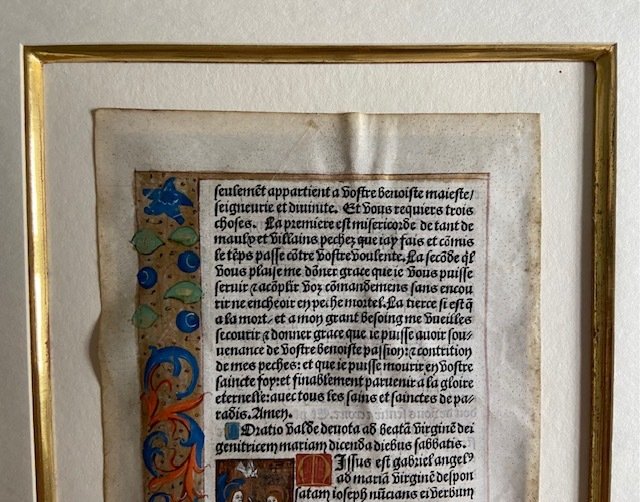 seulemēt appartient a vostre benoiste maieste/
seigneurie et diuinite. Et vous requiers trois
choses. La premiere est misericorde de tant de
maulx et villains pechez que iay fais et cōmis
le tēps passe cōtre vostre voulente. La secōde q̄l
vous plaise me dōner grace que ie vous puisse
seruir ⁊ acōplir voz cōmandemens sans encou
rir ne encheoir en peche mortel. La tierce si est q̄
a la mort, et a mon grant besoing me vueilles
secourir ⁊ donner grace que ie puisse auoir sou-
uenance de vostre benoiste passion: ⁊ contrition
de mes peches: et que ie puisse mourir en vostre
saincte foy: et finablement paruenir a la gloire
eternelle: auec tous les sains et sainctes de pa-
radis. Amen.
Oratio valde deuota ad beatā virginē dei
genitricem mariam dicenda diebus sabbatis.
Missus est gabriel angelꝰ
ad mariā virginē despon
satam ioseph nūcians ei verbum